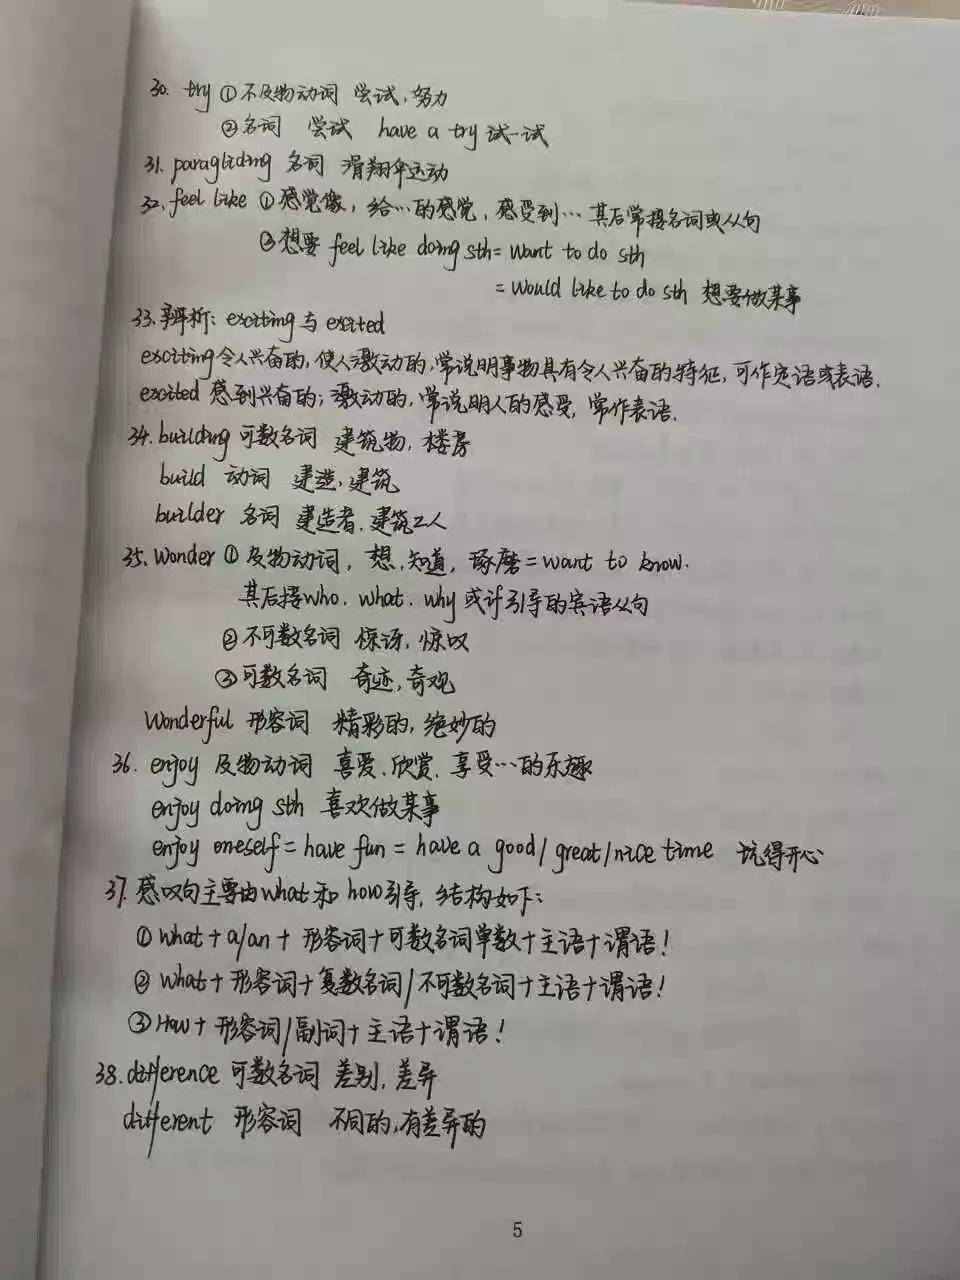 30. try ①不及物动词 尝试,努力
②名词 尝试 have a try 试一试
31. paragliding 名词 滑翔伞运动
32. feel like ①感觉像,给…的感觉,感受到… 其后常接名词或从句
②想要 feel like doing sth = want to do sth
= would like to do sth 想要做某事
33. 辨析: exciting与excited
exciting令人兴奋的,使人激动的,常说明事物具有令人兴奋的特征,可作定语或表语.
excited 感到兴奋的;激动的,常说明人的感受,常作表语.
34. building 可数名词 建筑物,楼房
build 动词 建造,建筑
builder 名词 建造者,建筑工人
35. wonder ①及物动词,想,知道,琢磨=want to know.
其后接who. what. why 或if引导的宾语从句
②不可数名词 惊讶,惊叹
③可数名词 奇迹,奇观
wonderful 形容词 精彩的,绝妙的
36. enjoy 及物动词 喜爱.欣赏.享受…的乐趣
enjoy doing sth 喜欢做某事
enjoy oneself = have fun = have a good/great/nice time 玩得开心
37. 感叹句主要由what和how引导,结构如下:
①what+a/an+形容词+可数名词单数+主语+谓语!
②what+形容词+复数名词/不可数名词+主语+谓语!
③How+形容词/副词+主语+谓语!
38. difference 可数名词 差别,差异
different 形容词 不同的,有差异的
5